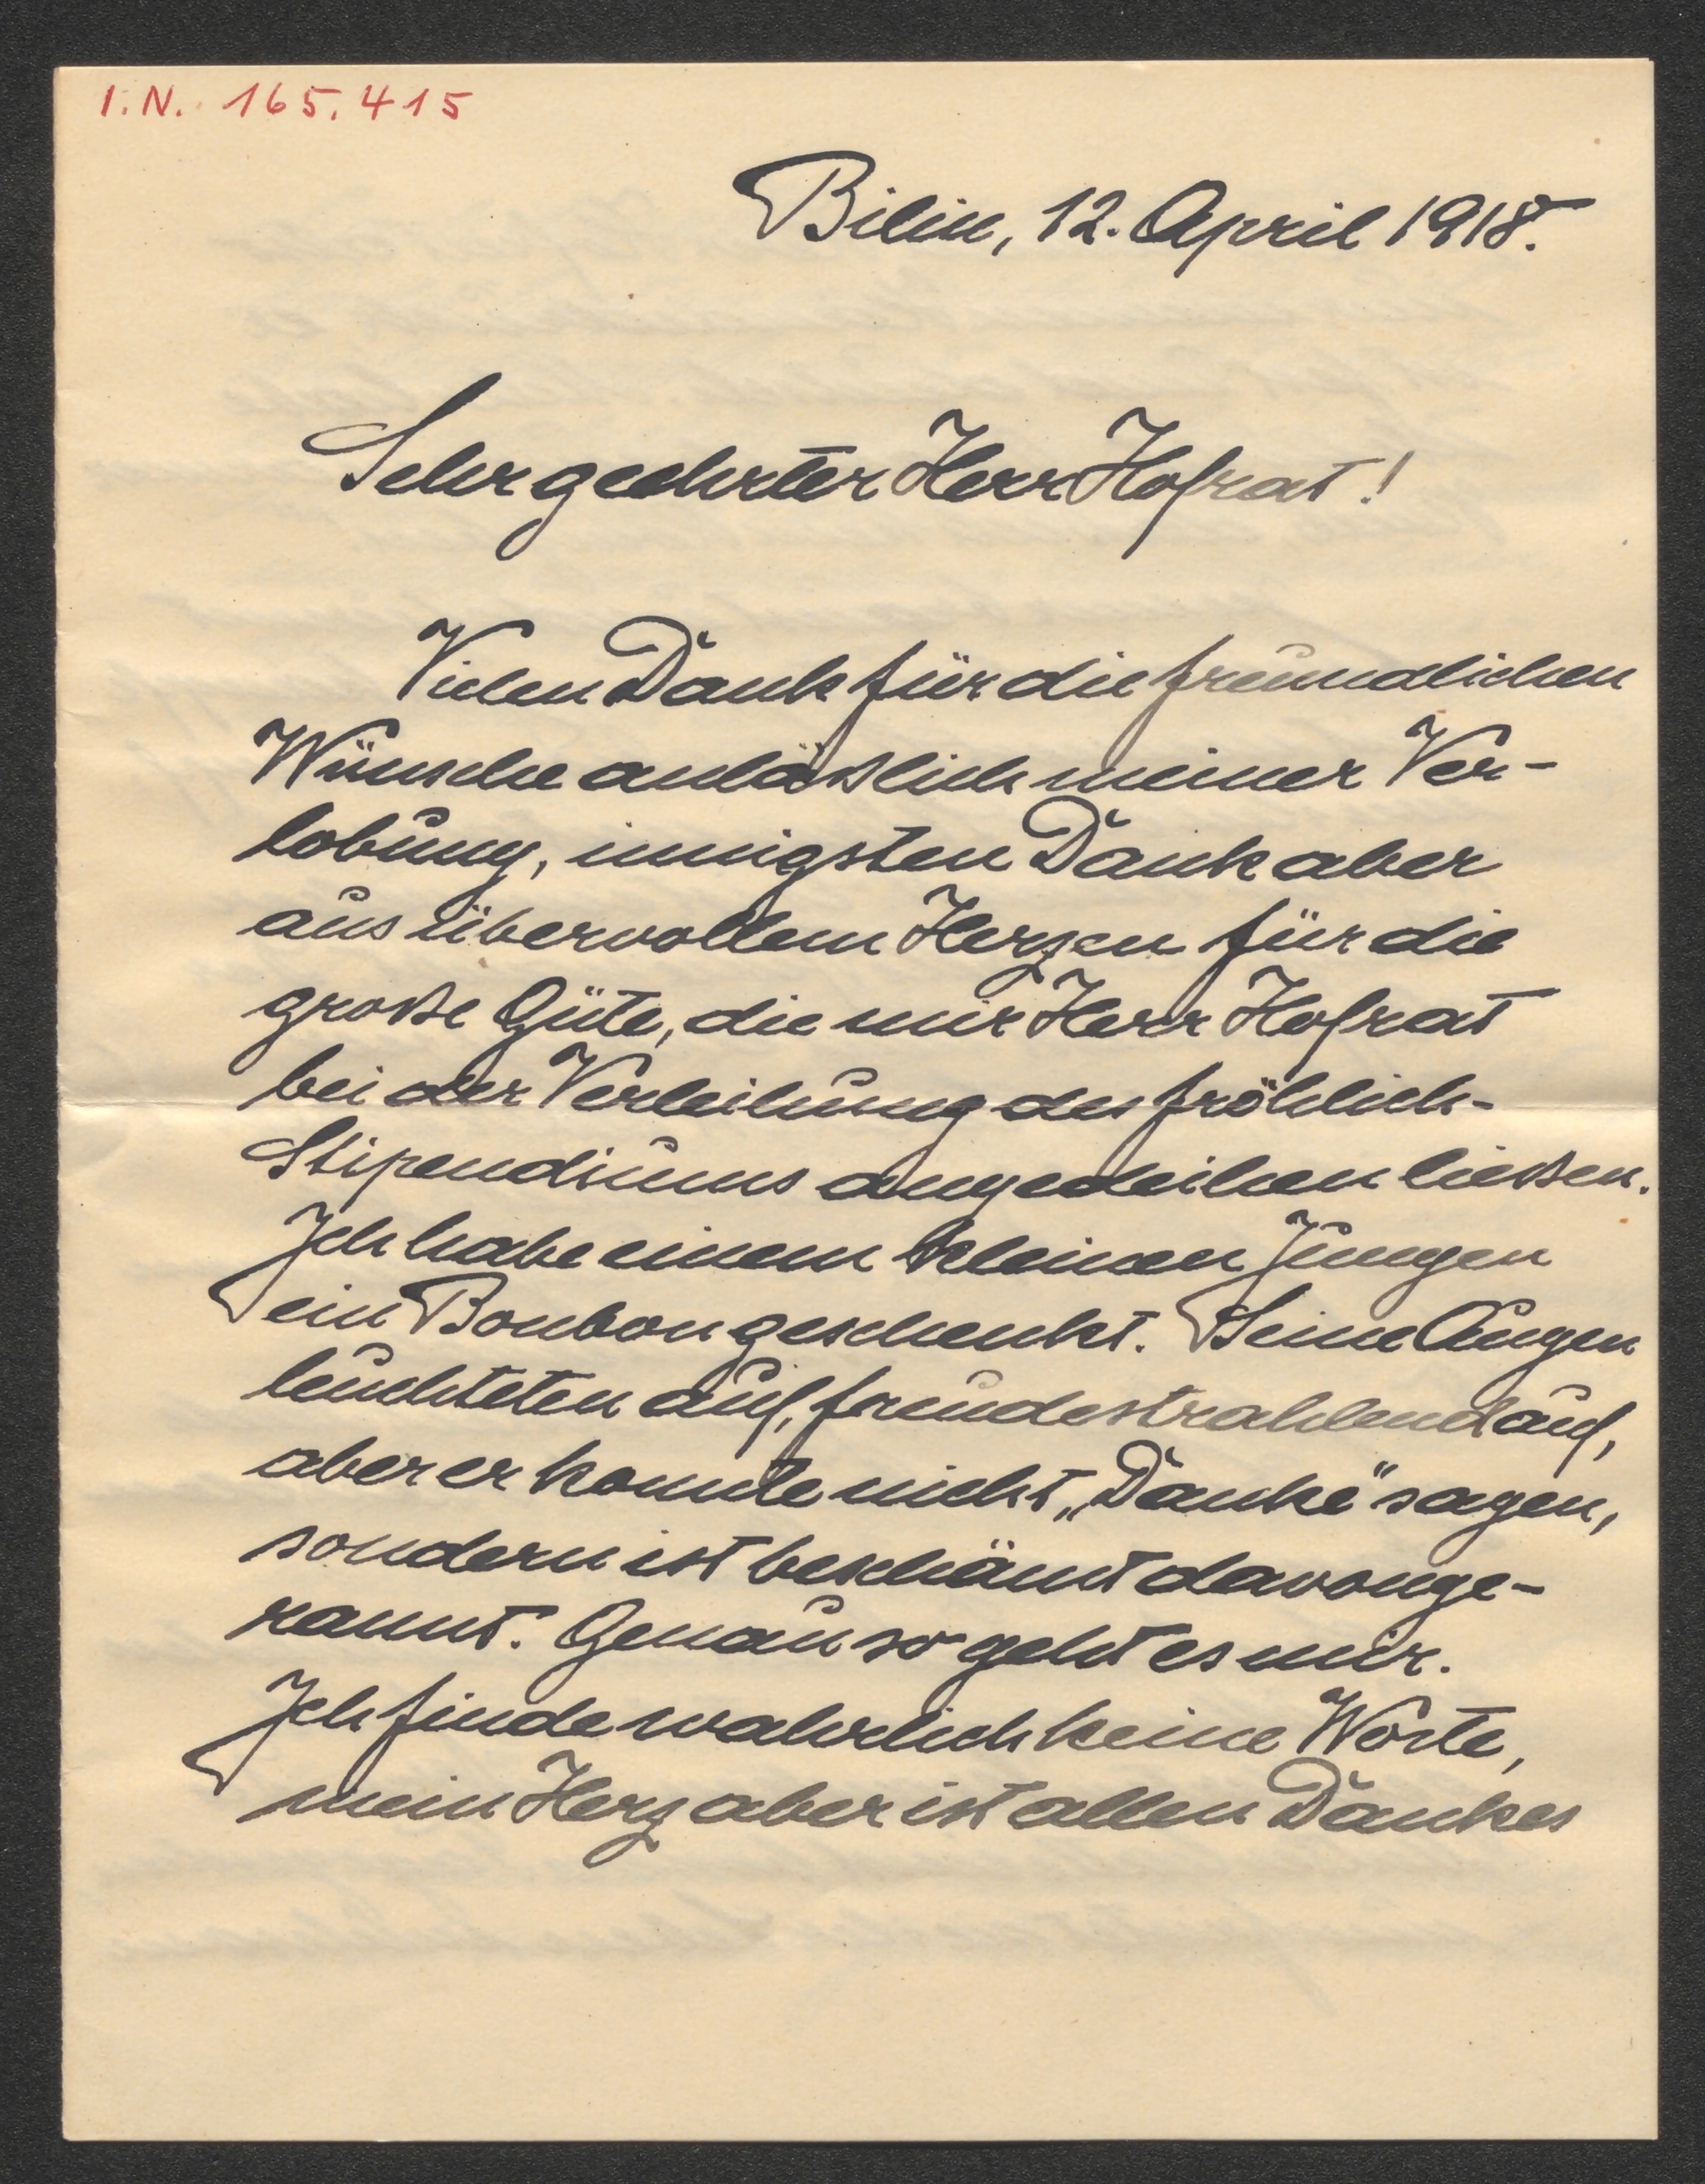 I.N. 165.415
Bilin, 12. April 1918.
Sehr geehrter Herr Hofrat!
Vielen Dank für die freundlichen
Wünsche anläßlich meiner Ver-
lobung, innigsten Dank aber
aus übervollem Herzen für die
große Güte, die mir Herr Hofrat
bei der Verleihung des Fröhlich-
Stipendiums angedeihen ließen.
Ich habe einem kleinen Jungen
ein Bonbon geschenkt. Seine Augen
leuchteten auf, freudestrahlend auf,
aber er konnte nicht „Danke" sagen,
sondern ist beschämt davonge-
rannt. Genau so geht es mir.
Ich finde wahrlich keine Worte,
mein Herz aber ist allen Dankes